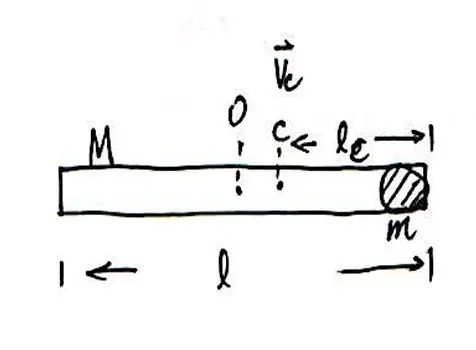 V⃗c
O
C
lc
M
m
l